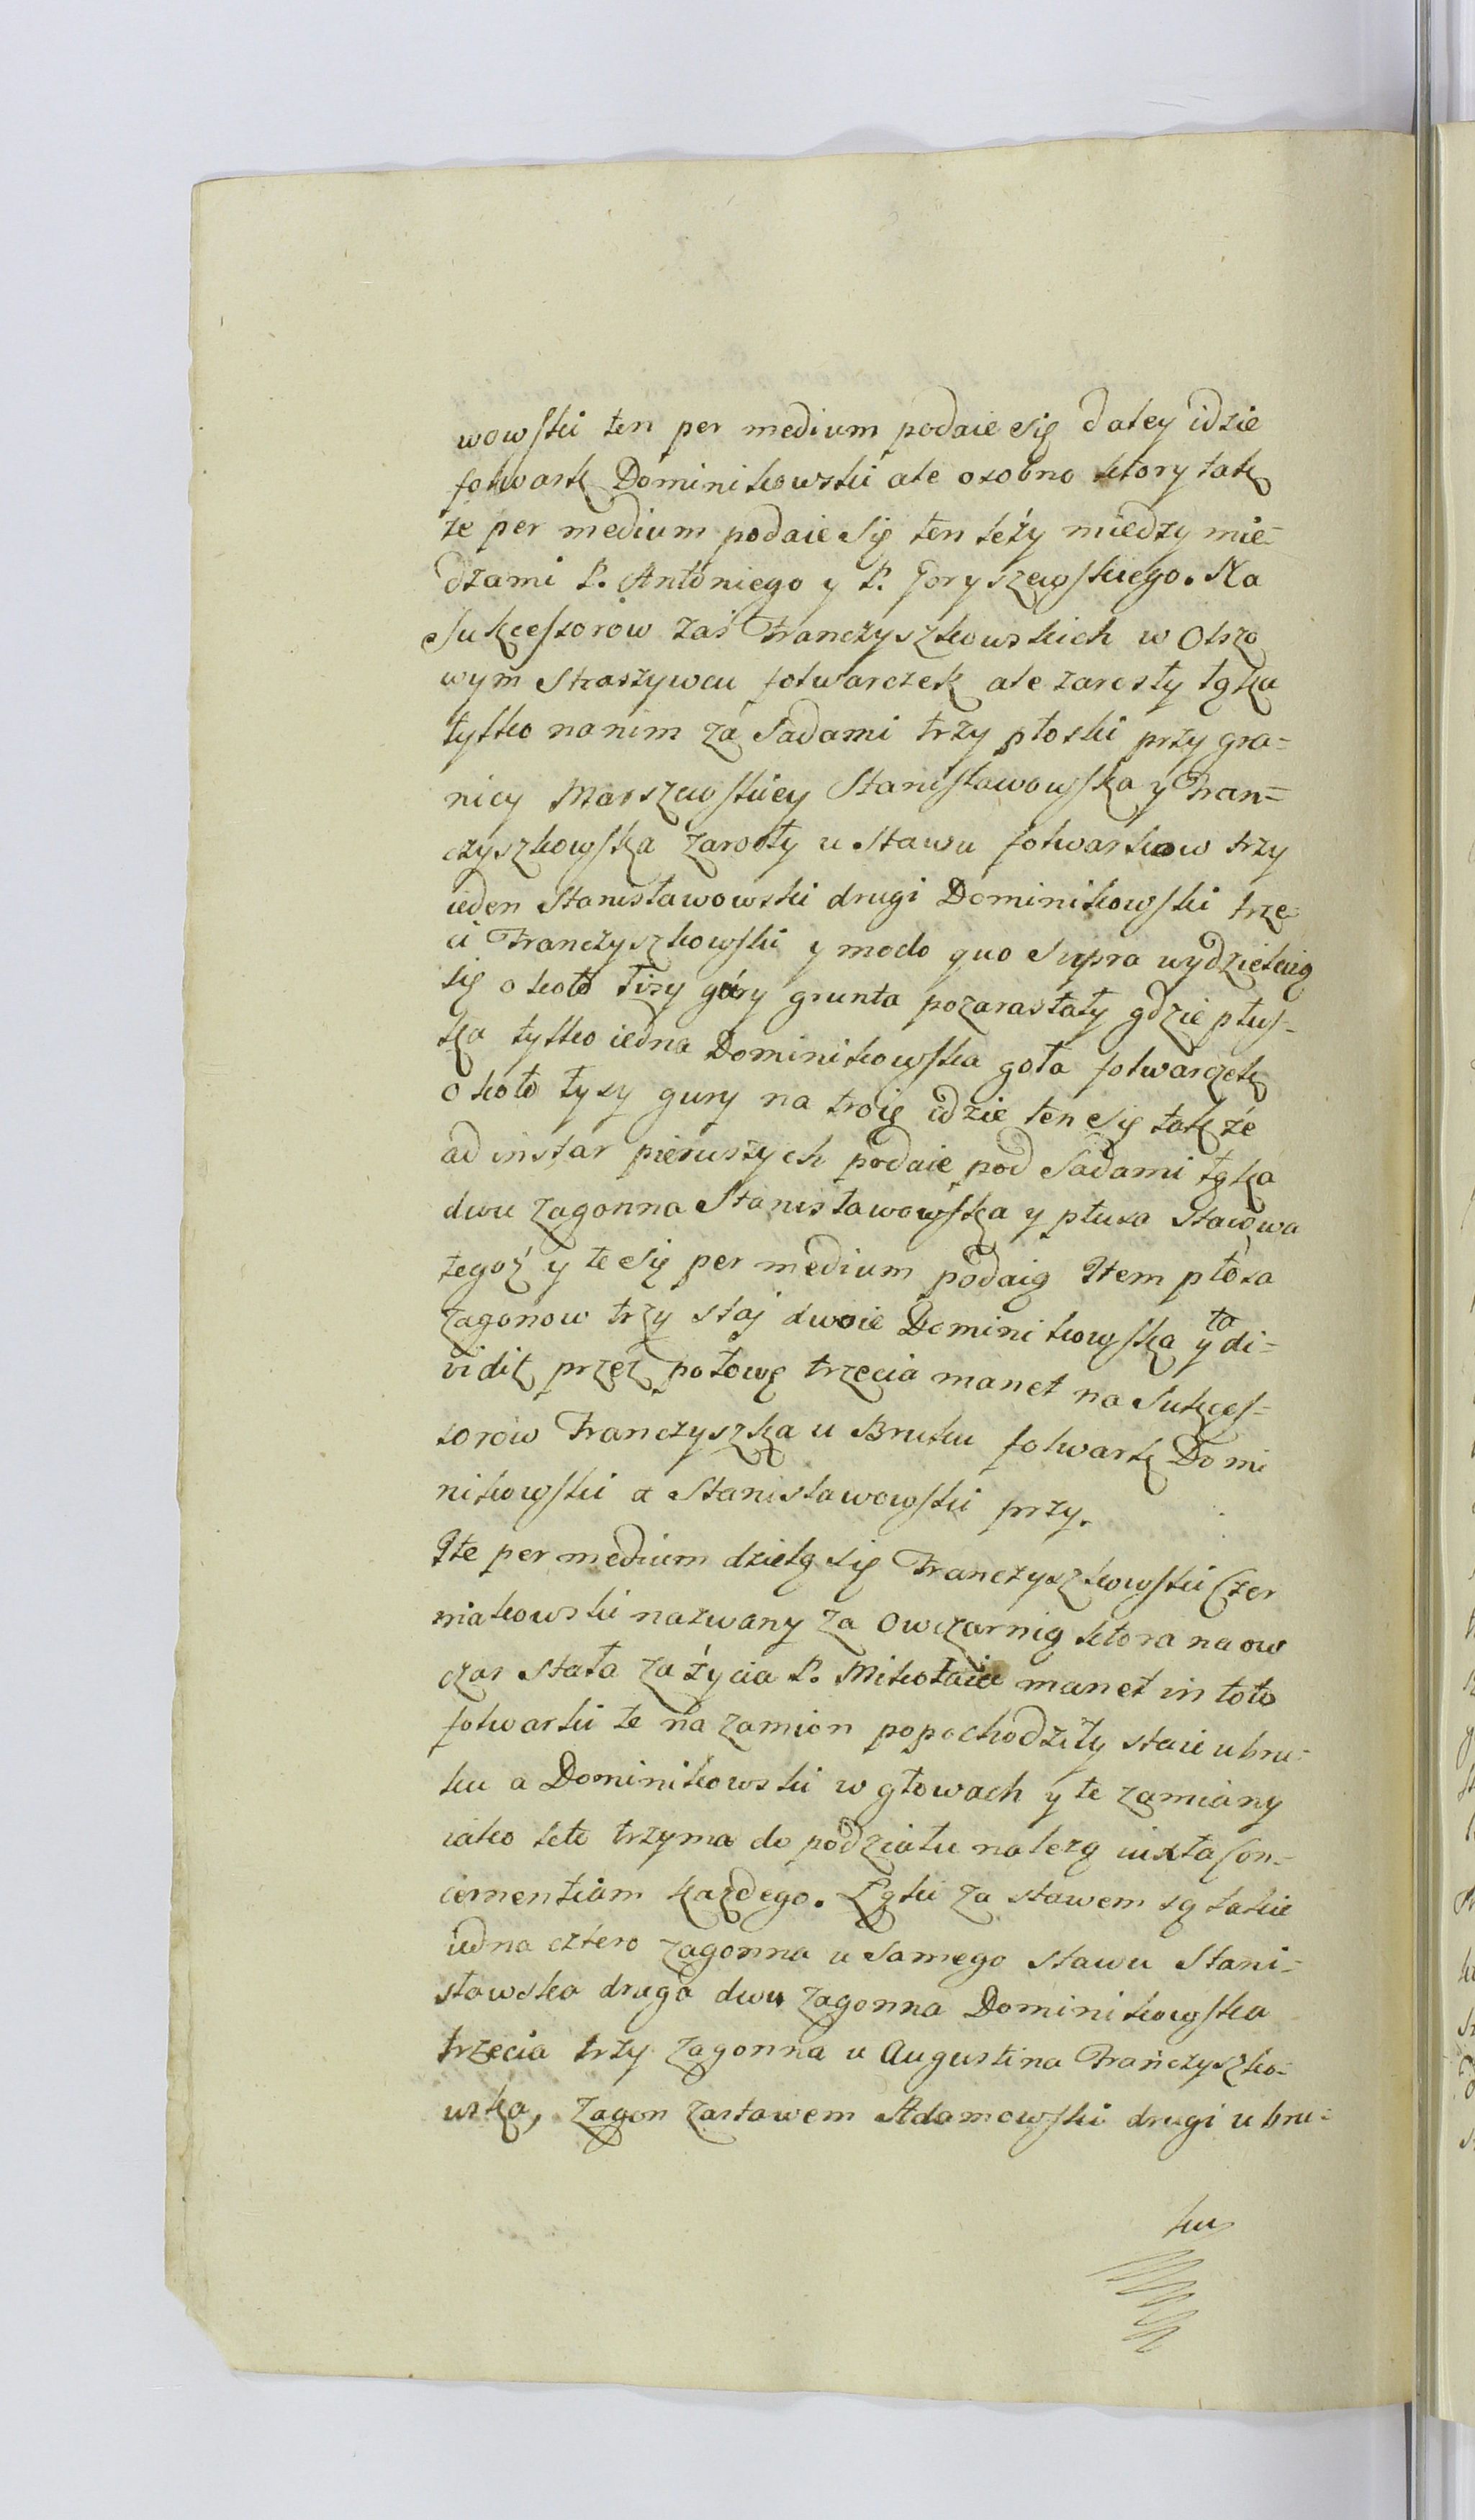 wowski ten per medium podaie się daley idzie
folwark Dominikowski ale osobno ktory tak
że per medium podaie się ten leży miedzy mie-
dzami P. Antoniego y P. Goryszewskiego. Na
Sukcessorow zaś Franczyszkowskich w Olszo
wym Straszywcu folwarczek ale zarosły łąka
tylko na nim za Sadami trzy płoski przy gra-
nicy Marszewskiey Stanisławowska y Fran-
czyszkowska zarosły u Stawu folwarkow trzy
ieden Stanisławowski drugi Dominikowski trze-
ci Franczyszkowski y modo quo supra wydzielaią
się około Łisy góry grunta pozarastały gdzie płus-
ka tylko iedna Dominikowska goła folwarczek
około łysy gury na troie idzie ten się także
ad instar pierwszych podaie pod Sadami łąka
dwu zagonna Stanisławowska y płusa Stawowa
tegoż y te się per medium podaią Item płosa
zagonow trzy staj dwoie Dominikowska y to di-
vidit przez połowę trzecia manet na Sukces-
sorow Franczyszka u Bruku folwark Domi
nikowski a Stanisławowski przy.
Ite per medium dzielą się Franczyszkowski Czer
niakowski nazwany za Owczarnią ktora na ow
czas stała za życia P. Mikołaia manet in toto
folwarki te na zamian popochodziły staie u bru-
ku a Dominikowski w głowach y te zamiany
iako kto trzyma do podziału należą iuxta con-
cernentiam każdego. Łąki za stawem są takie
iedna cztero zagonna u Samego stawu Stani-
sławska druga dwu zagonna Dominikowska
trzecia trzy zagonna u Augustina Franczyszko-
wska, Zagon za stawem Adamowski drugi u bru-
ku